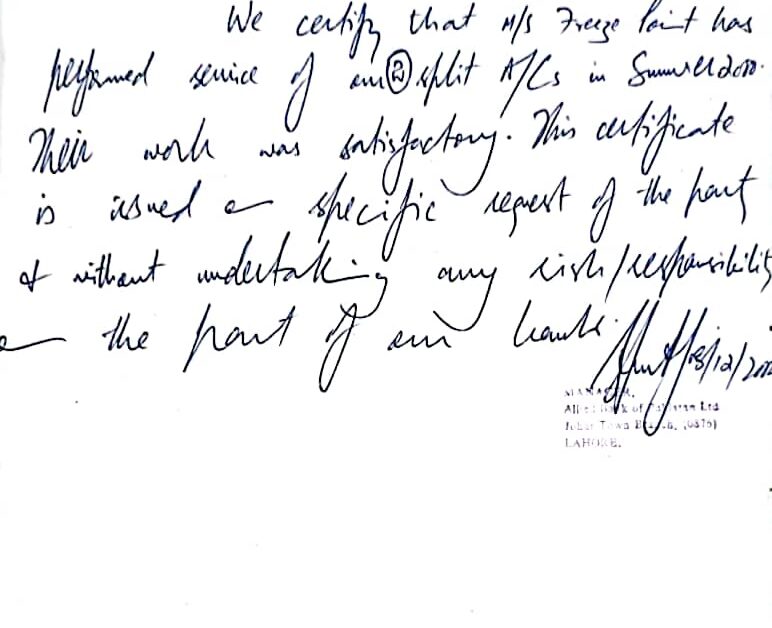 We certify that M/S Freeze Point has
performed service of our ② split A/Cs in Summer 2000.
Their work was satisfactory. This certificate
is issued on specific request of the party
& without undertaking any risk/responsibility
on the part of our bank.
/12/200
MANAGER,
Allied Bank of Pakistan Ltd
Johar Town Branch, (0876)
LAHORE.